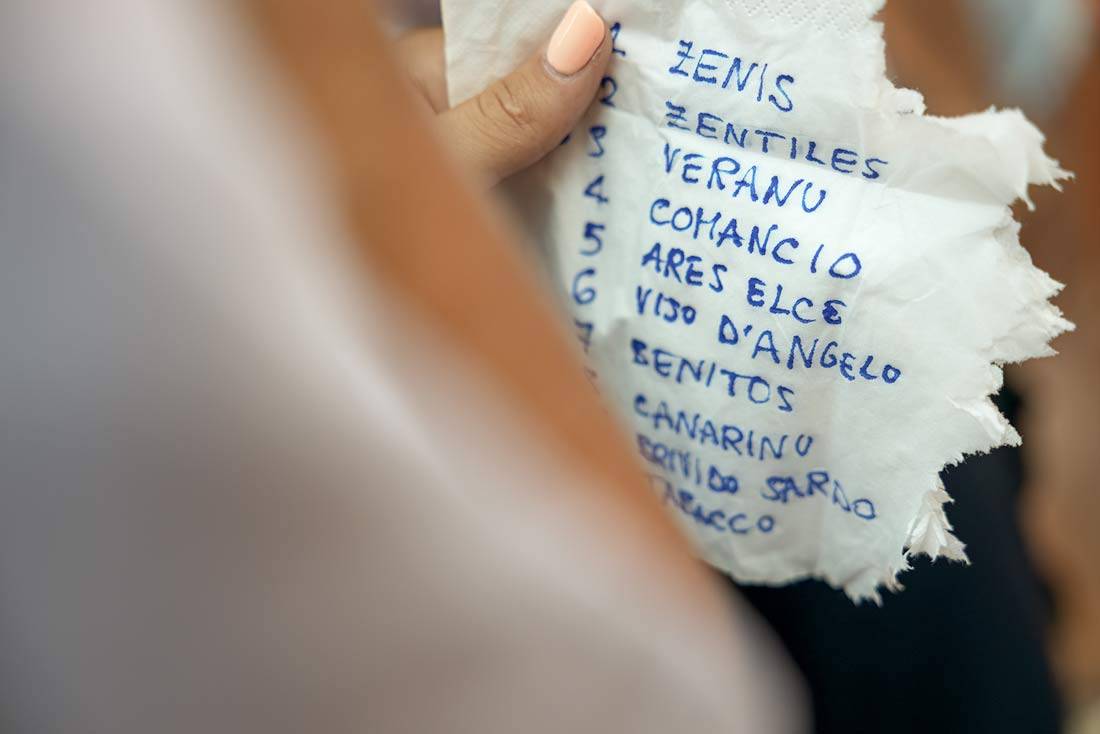 1 ZENIS
2 ZENTILES
3 VERANU
4 COMANCIO
5 ARES ELCE
6 VISO D'ANGELO
7 BENITOS
CANARINU
BRIVIDO SARDO
TABACCO